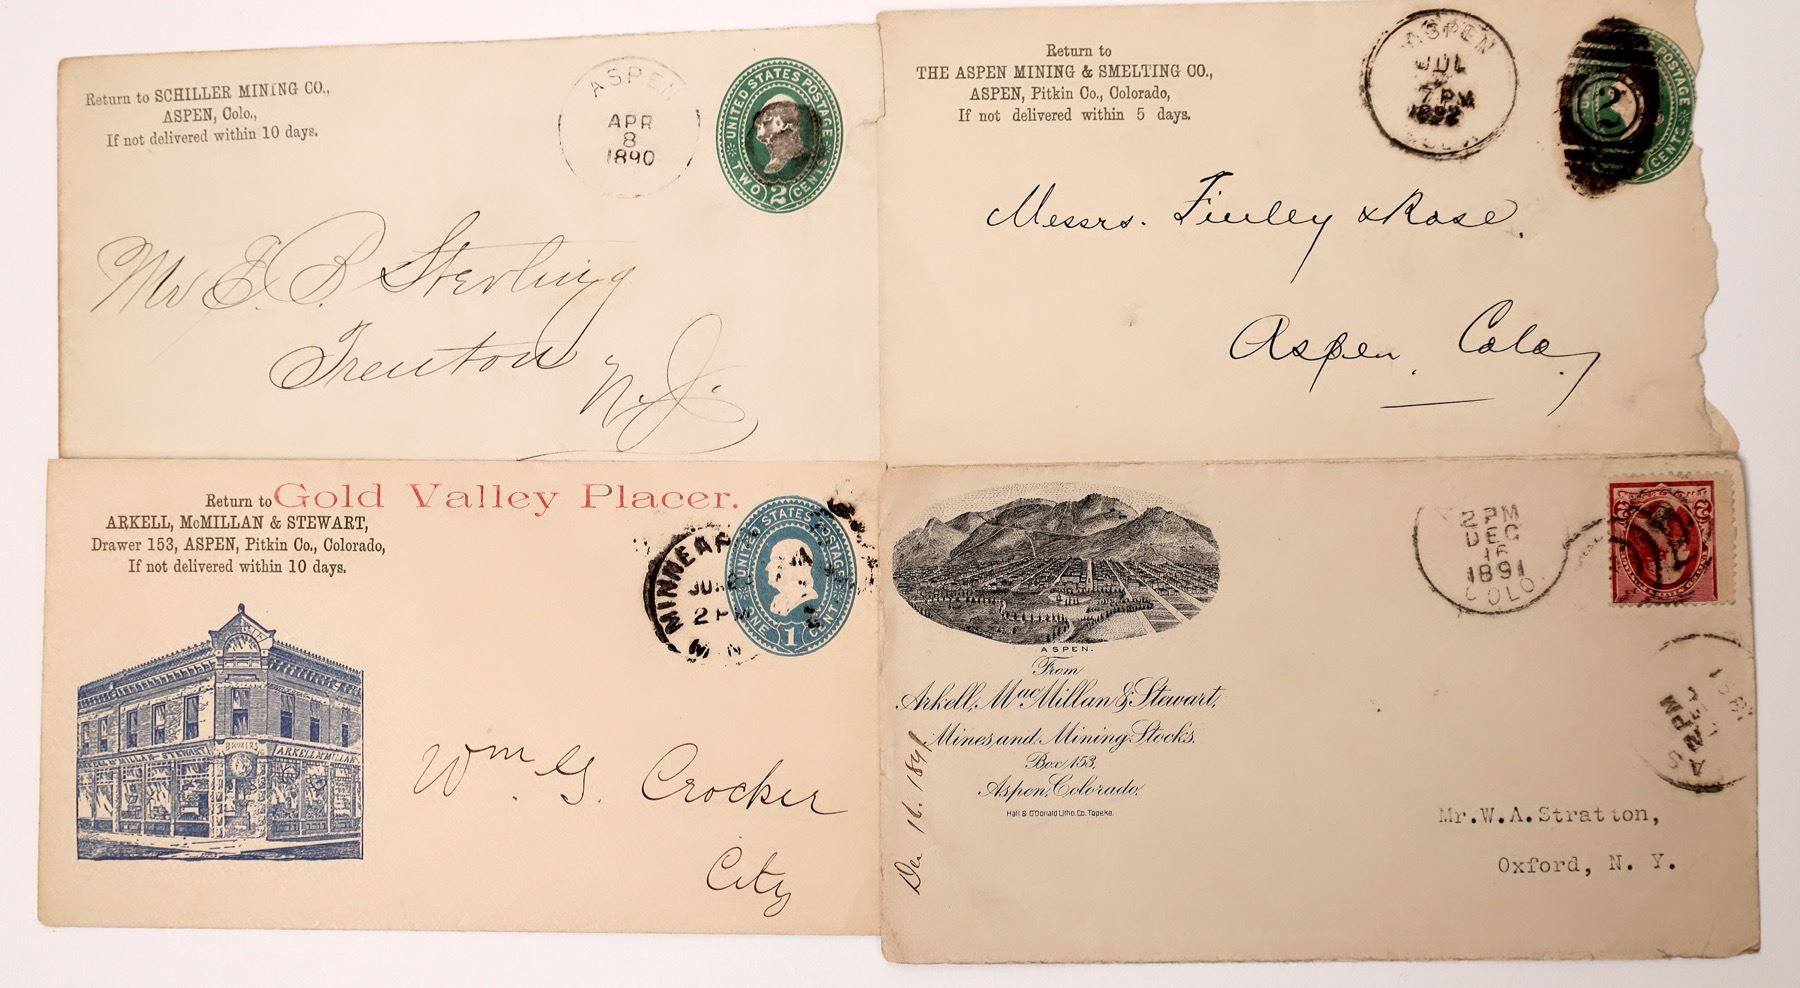 Return to SCHILLER MINING CO.,
ASPEN, Colo.,
If not delivered within 10 days.
ASPEN
APR
8
1890
UNITED STATES POSTAGE
TWO 2 CENTS
Mr E. B. Sterling
Trenton
N.J.
Return to
THE ASPEN MINING & SMELTING CO.,
ASPEN, Pitkin Co., Colorado,
If not delivered within 5 days.
ASPEN
JUL
7 PM
1892
COLO
2
POSTAGE
CENTS
Messrs. Finley & Rose.
Aspen, Colo,
Return to Gold Valley Placer.
ARKELL, McMILLAN & STEWART,
Drawer 153, ASPEN, Pitkin Co., Colorado,
If not delivered within 10 days.
MINNEAP
JUN
2 PM
MINN
UNITED STATES POSTAGE
ONE 1 CENT
ARKELL McMILLAN
Wm G. Crocker
City
ASPEN.
From
Arkell, MacMillan & Stewart,
Mines and Mining Stocks.
Box 153,
Aspen, Colorado.
Hall & O'Donald Litho. Co. Topeka.
Dec 16. 1891
2 PM
DEC
16
1891
COLO.
2 PM
1891
Mr. W. A. Stratton,
Oxford, N. Y.